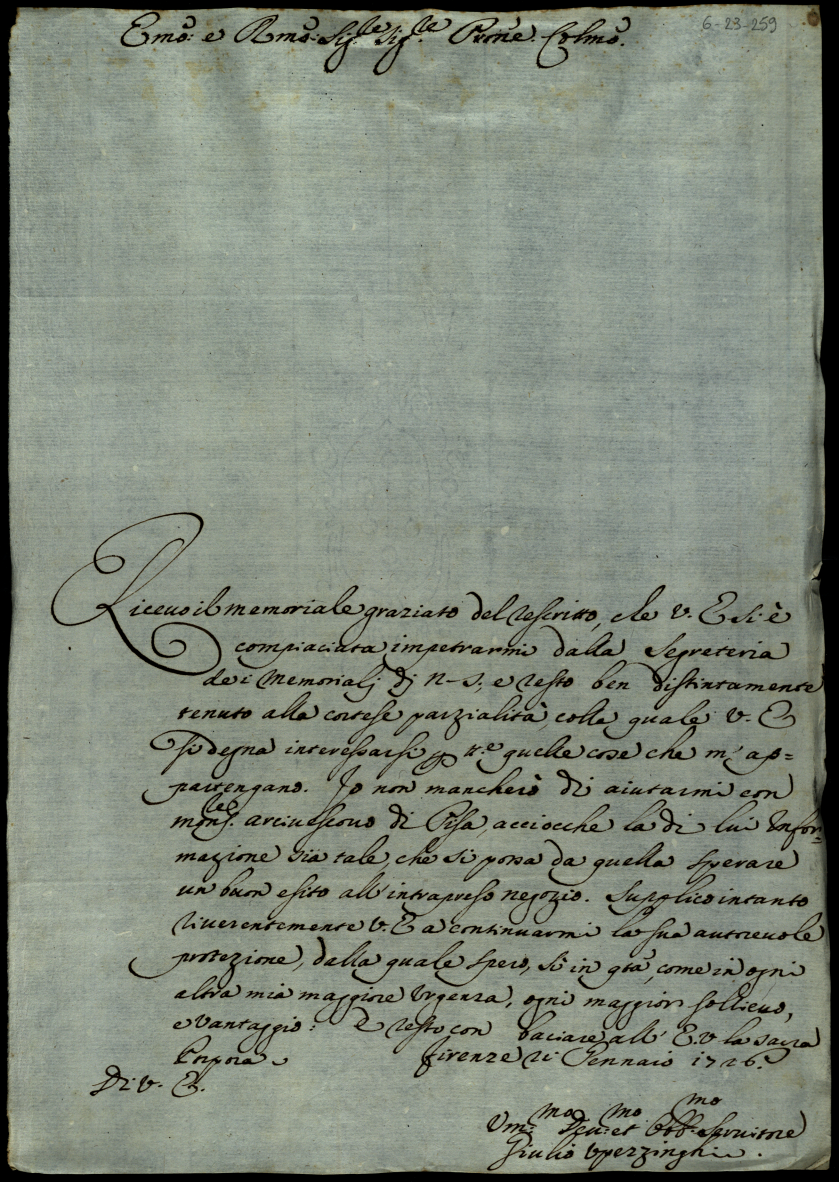 6-23-259
Emo: e Rmo: Sig.re Sig.re Prone Colmo.
Riceuo il memoriale graziato del rescritto, che V. E. si è
compiaciuta impetrarmi dalla Segreteria
dei Memorialj dj N-S., e resto ben distintamente
tenuto alla cortese parzialità, colla quale V. E.
si degna interessarsi p tt.e quelle cose che m'ap=
partengano. Jo non mancherò di aiutarmi con
mons.re arciuescouo di Pisa, acciocche la di lui Infor=
mazione sia tale, che si possa da quella sperare
un buon esito all'intrapreso negozio. Supplico intanto
riuerentemente V. E. a continuarmi la sua autoreuole
protezione, dalla quale spero, sì in qta, come in ogni
altra mia maggiore Vrgenza, ogni maggior sollieuo,
e Vantaggio: E resto con baciare all' E. V. la sacra
Porpora firenze 21 Gennaio 1726.
Di V. E.
Vm.mo Deu.mo et Obb.mo Seruitore
Giulio Vperzinghi.